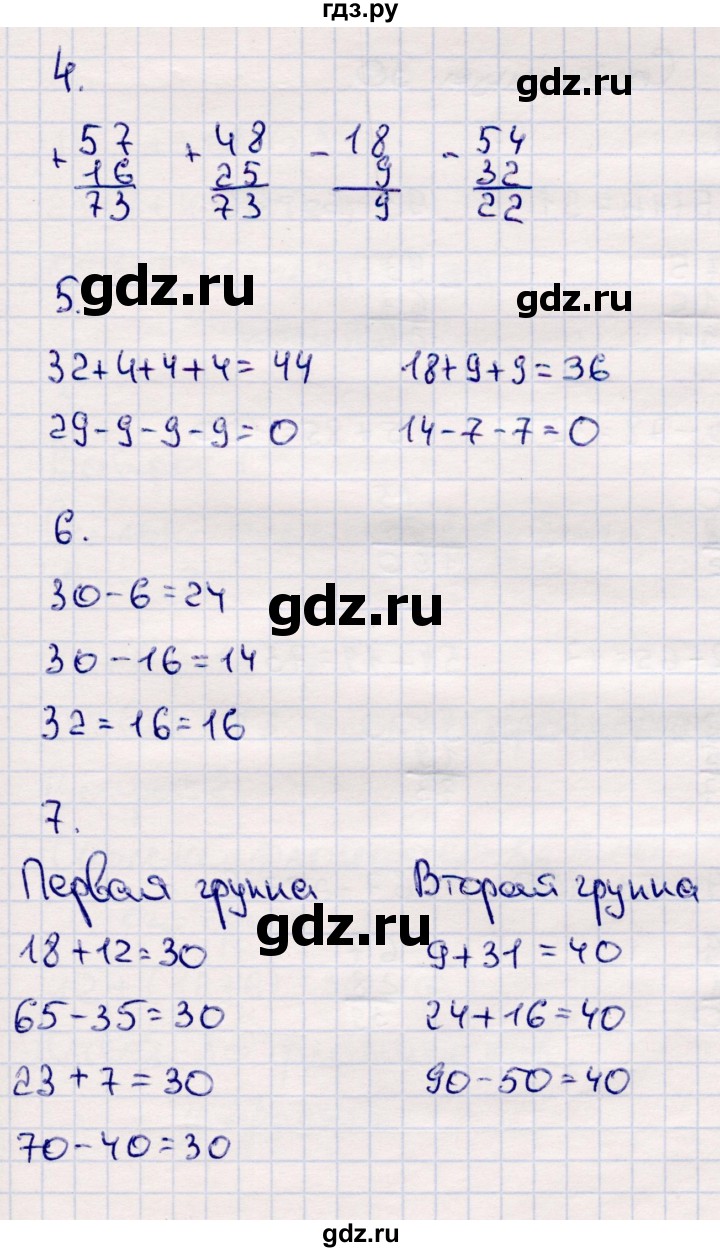 гдз.ру
4.
gdz.ru
+ 57 + 48 - 18 - 54
16 25 9 32
73 73 9 22
5.
gdz.ru
gdz.ru
32+4+4+4=44 18+9+9=36
29-9-9-9=0 14-7-7=0
6.
30-6=24
gdz.ru
30-16=14
32=16=16
7.
Первая группа Вторая группа
gdz.ru
18+12=30 9+31=40
65-35=30 24+16=40
23+7=30 90-50=40
70-40=30
gdz.ru